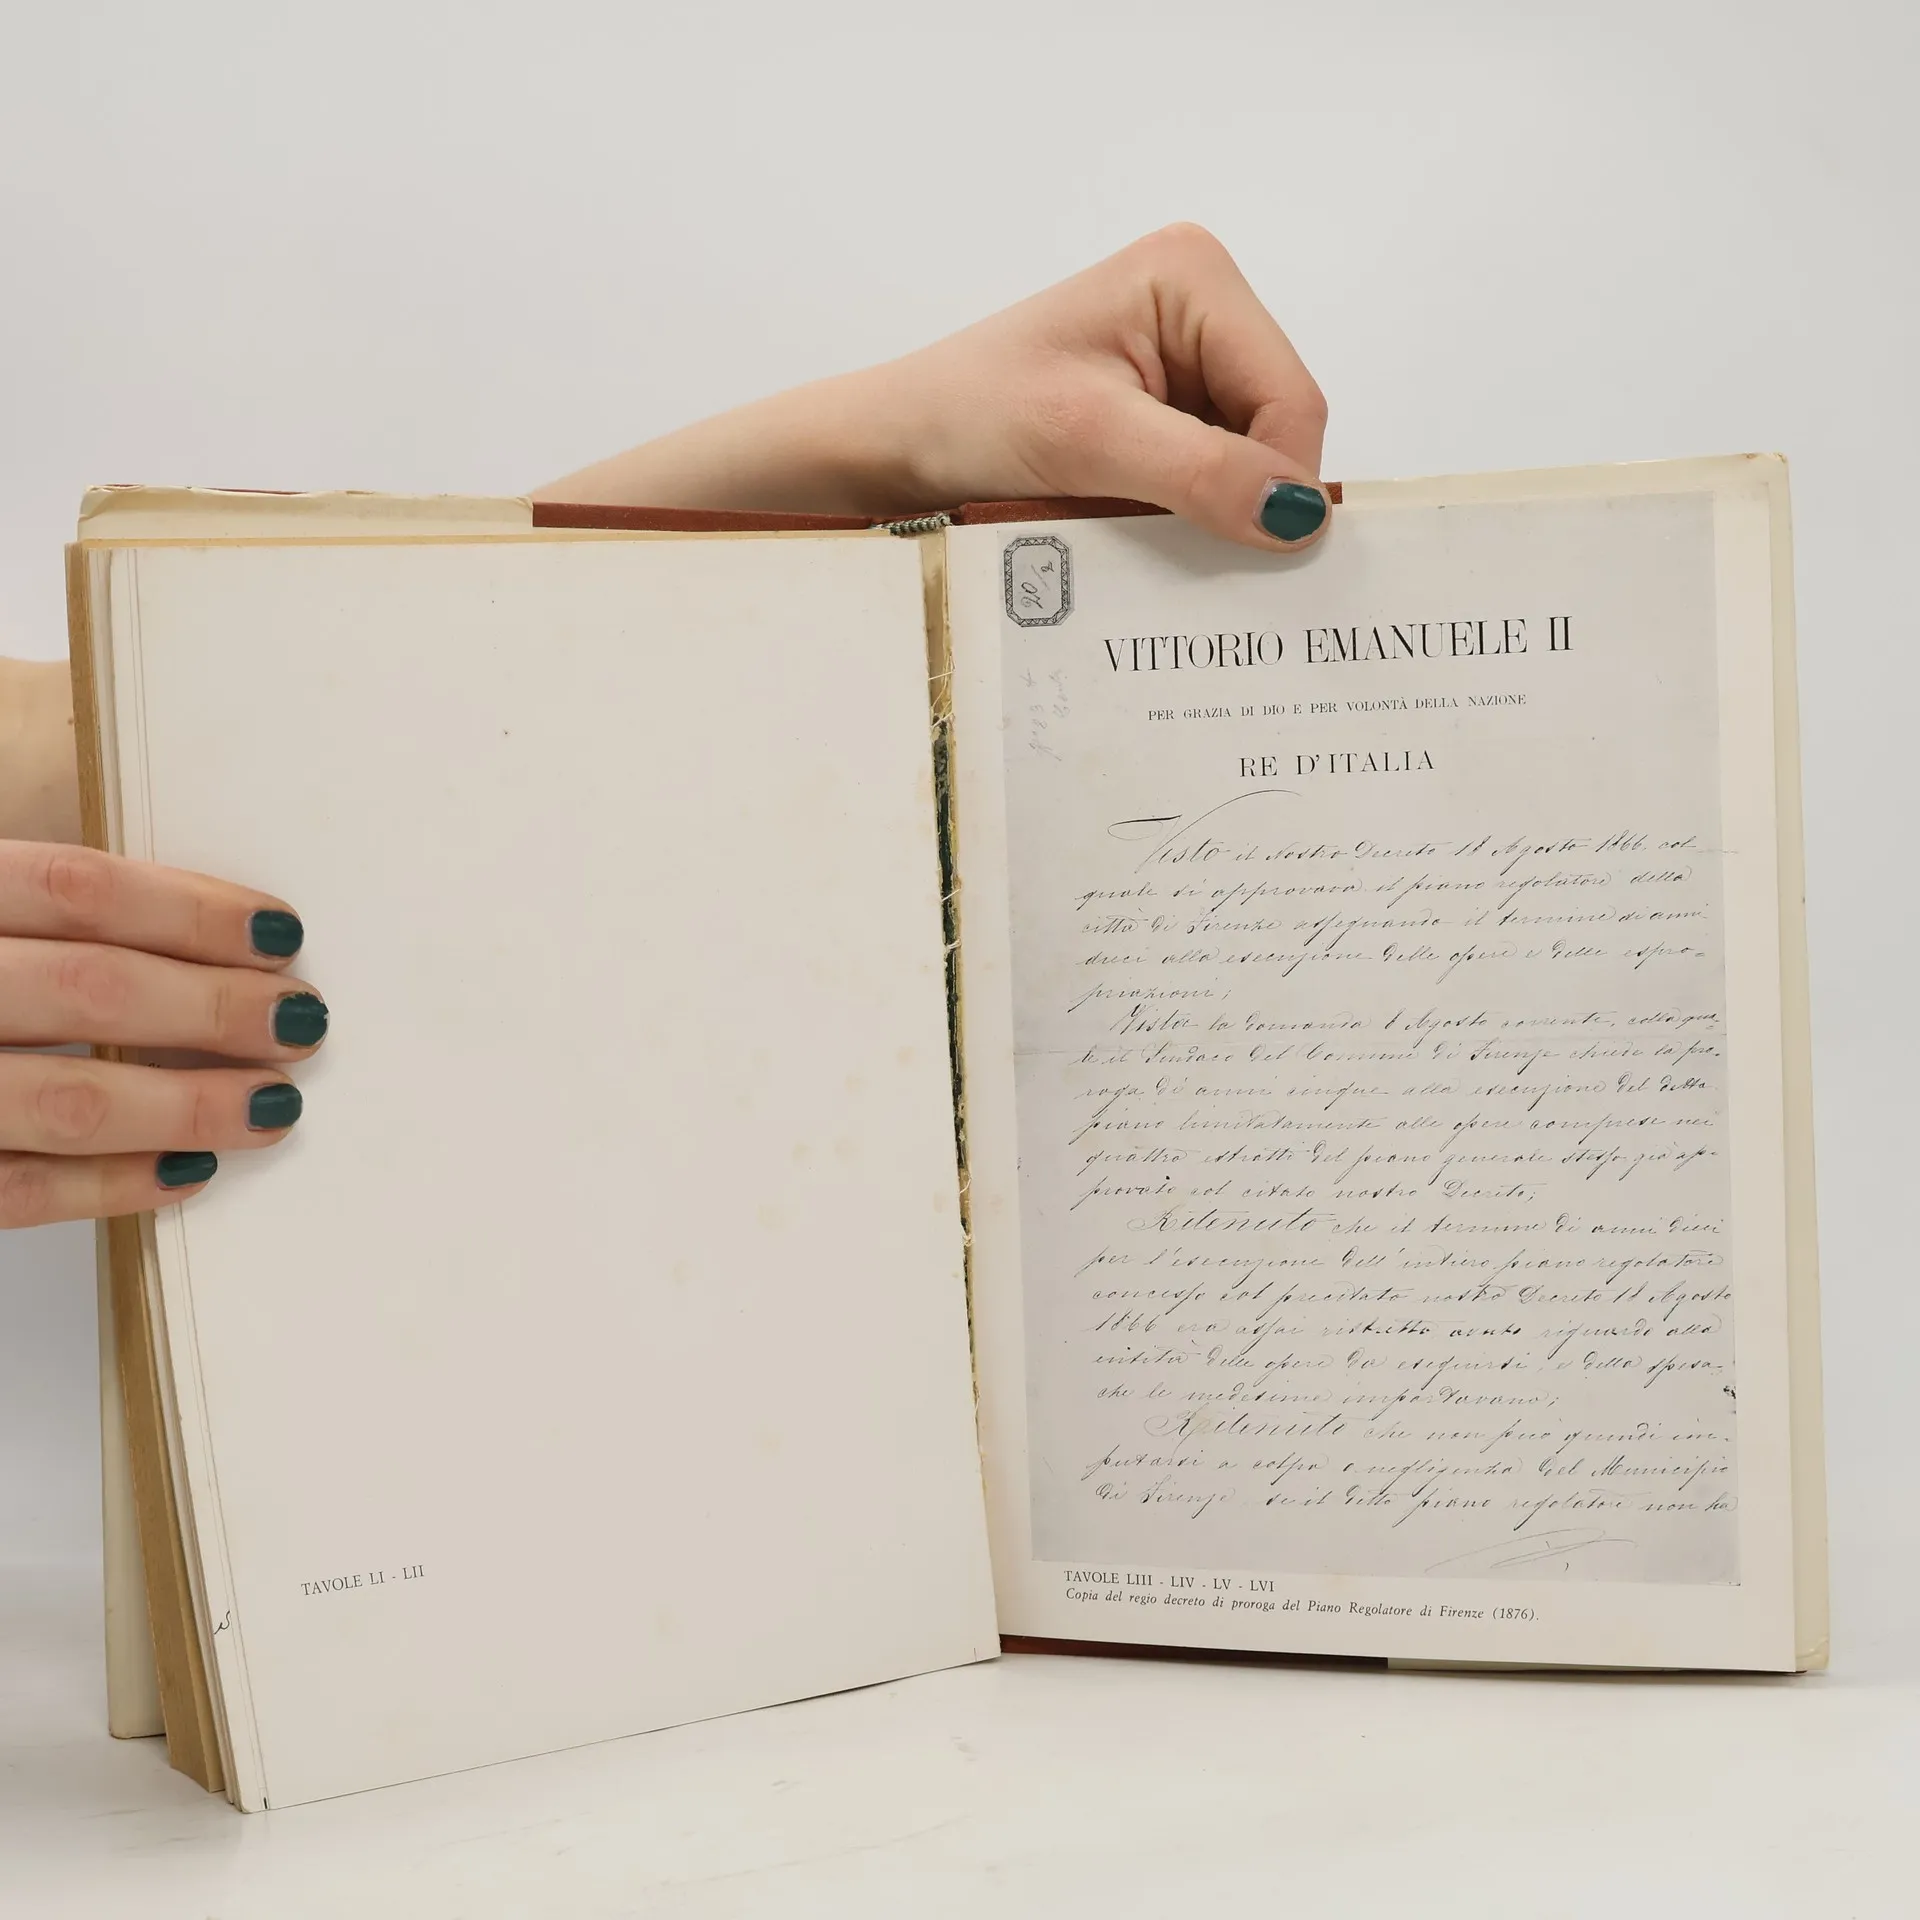 TAVOLE LI - LII
20/2
VITTORIO EMANUELE II
PER GRAZIA DI DIO E PER VOLONTÀ DELLA NAZIONE
RE D'ITALIA
Visto il Nostro Decreto 18 Agosto 1866 col
quale si approvava il piano regolatore della
città di Firenze assegnando il termine di anni
dieci alla esecuzione delle opere e delle espro=
priazioni;
Vista la domanda 8 Agosto corrente, colla qua=
le il Sindaco del Comune di Firenze chiede la pro=
roga di anni cinque alla esecuzione del detto
piano limitatamente alle opere comprese nei
quattro estratti del piano generale stesso già ap=
provato col citato nostro Decreto;
Ritenuto che il termine di anni dieci
per l'esecuzione dell'intiero piano regolatore
concesso col precitato nostro Decreto 18 Agosto
1866 era assai ristretto avuto riguardo alla
entità delle opere da eseguirsi, e della spesa
che le medesime importavano;
Ritenuto che non può quindi im=
putarsi a colpa o negligenza del Municipio
di Firenze se il detto piano regolatore non ha
TAVOLE LIII - LIV - LV - LVI
Copia del regio decreto di proroga del Piano Regolatore di Firenze (1876).